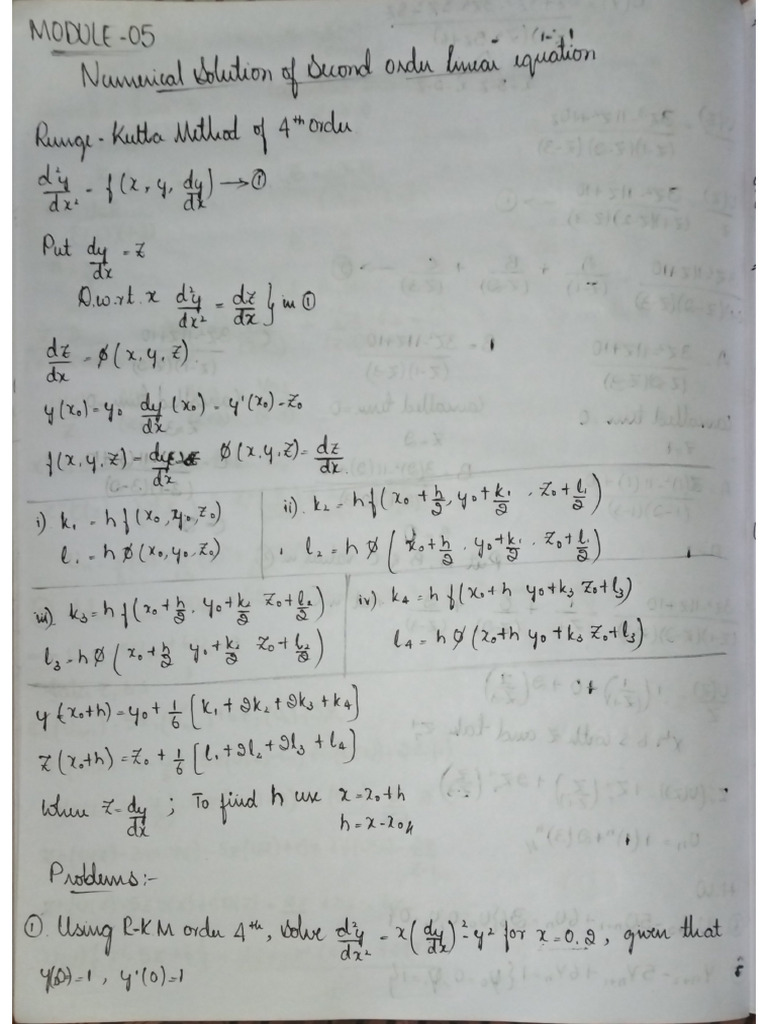 MODULE-05
Numerical Solution of Second order linear equation
Runge-Kutta Method of 4th order
d²y/dx² = f(x, y, dy/dx) → ①
Put dy/dx = z
D.w.r.t. x d²y/dx² = dz/dx } in ①
dz/dx = φ(x, y, z)
y(x₀) = y₀ dy/dx (x₀) = y'(x₀) = z₀
f(x, y, z) = dy/dx φ(x, y, z) = dz/dx
i) k₁ = h f(x₀, y₀, z₀)
l₁ = h φ(x₀, y₀, z₀)
ii) k₂ = h f(x₀ + h/2, y₀ + k₁/2, z₀ + l₁/2)
l₂ = h φ(x₀ + h/2, y₀ + k₁/2, z₀ + l₁/2)
iii) k₃ = h f(x₀ + h/2, y₀ + k₂/2 z₀ + l₂/2)
l₃ = h φ(x₀ + h/2 y₀ + k₂/2 z₀ + l₂/2)
iv) k₄ = h f(x₀ + h y₀ + k₃ z₀ + l₃)
l₄ = h φ(x₀ + h y₀ + k₃ z₀ + l₃)
y(x₀ + h) = y₀ + 1/6 [k₁ + 2k₂ + 2k₃ + k₄]
z(x₀ + h) = z₀ + 1/6 [l₁ + 2l₂ + 2l₃ + l₄]
Where z = dy/dx ; To find h use x = x₀ + h
h = x - x₀
Problems:-
①. Using R-KM order 4th, solve d²y/dx² = x(dy/dx)² - y² for x = 0.2, given that
y(0) = 1, y'(0) = 1